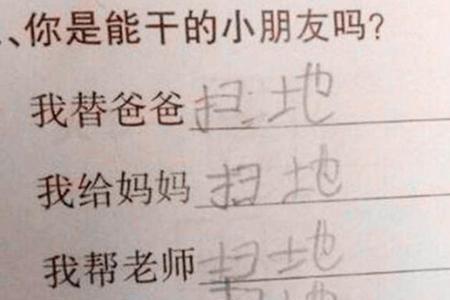 、你是能干的小朋友吗?
我替爸爸扫地
我给妈妈扫地
我帮老师扫地